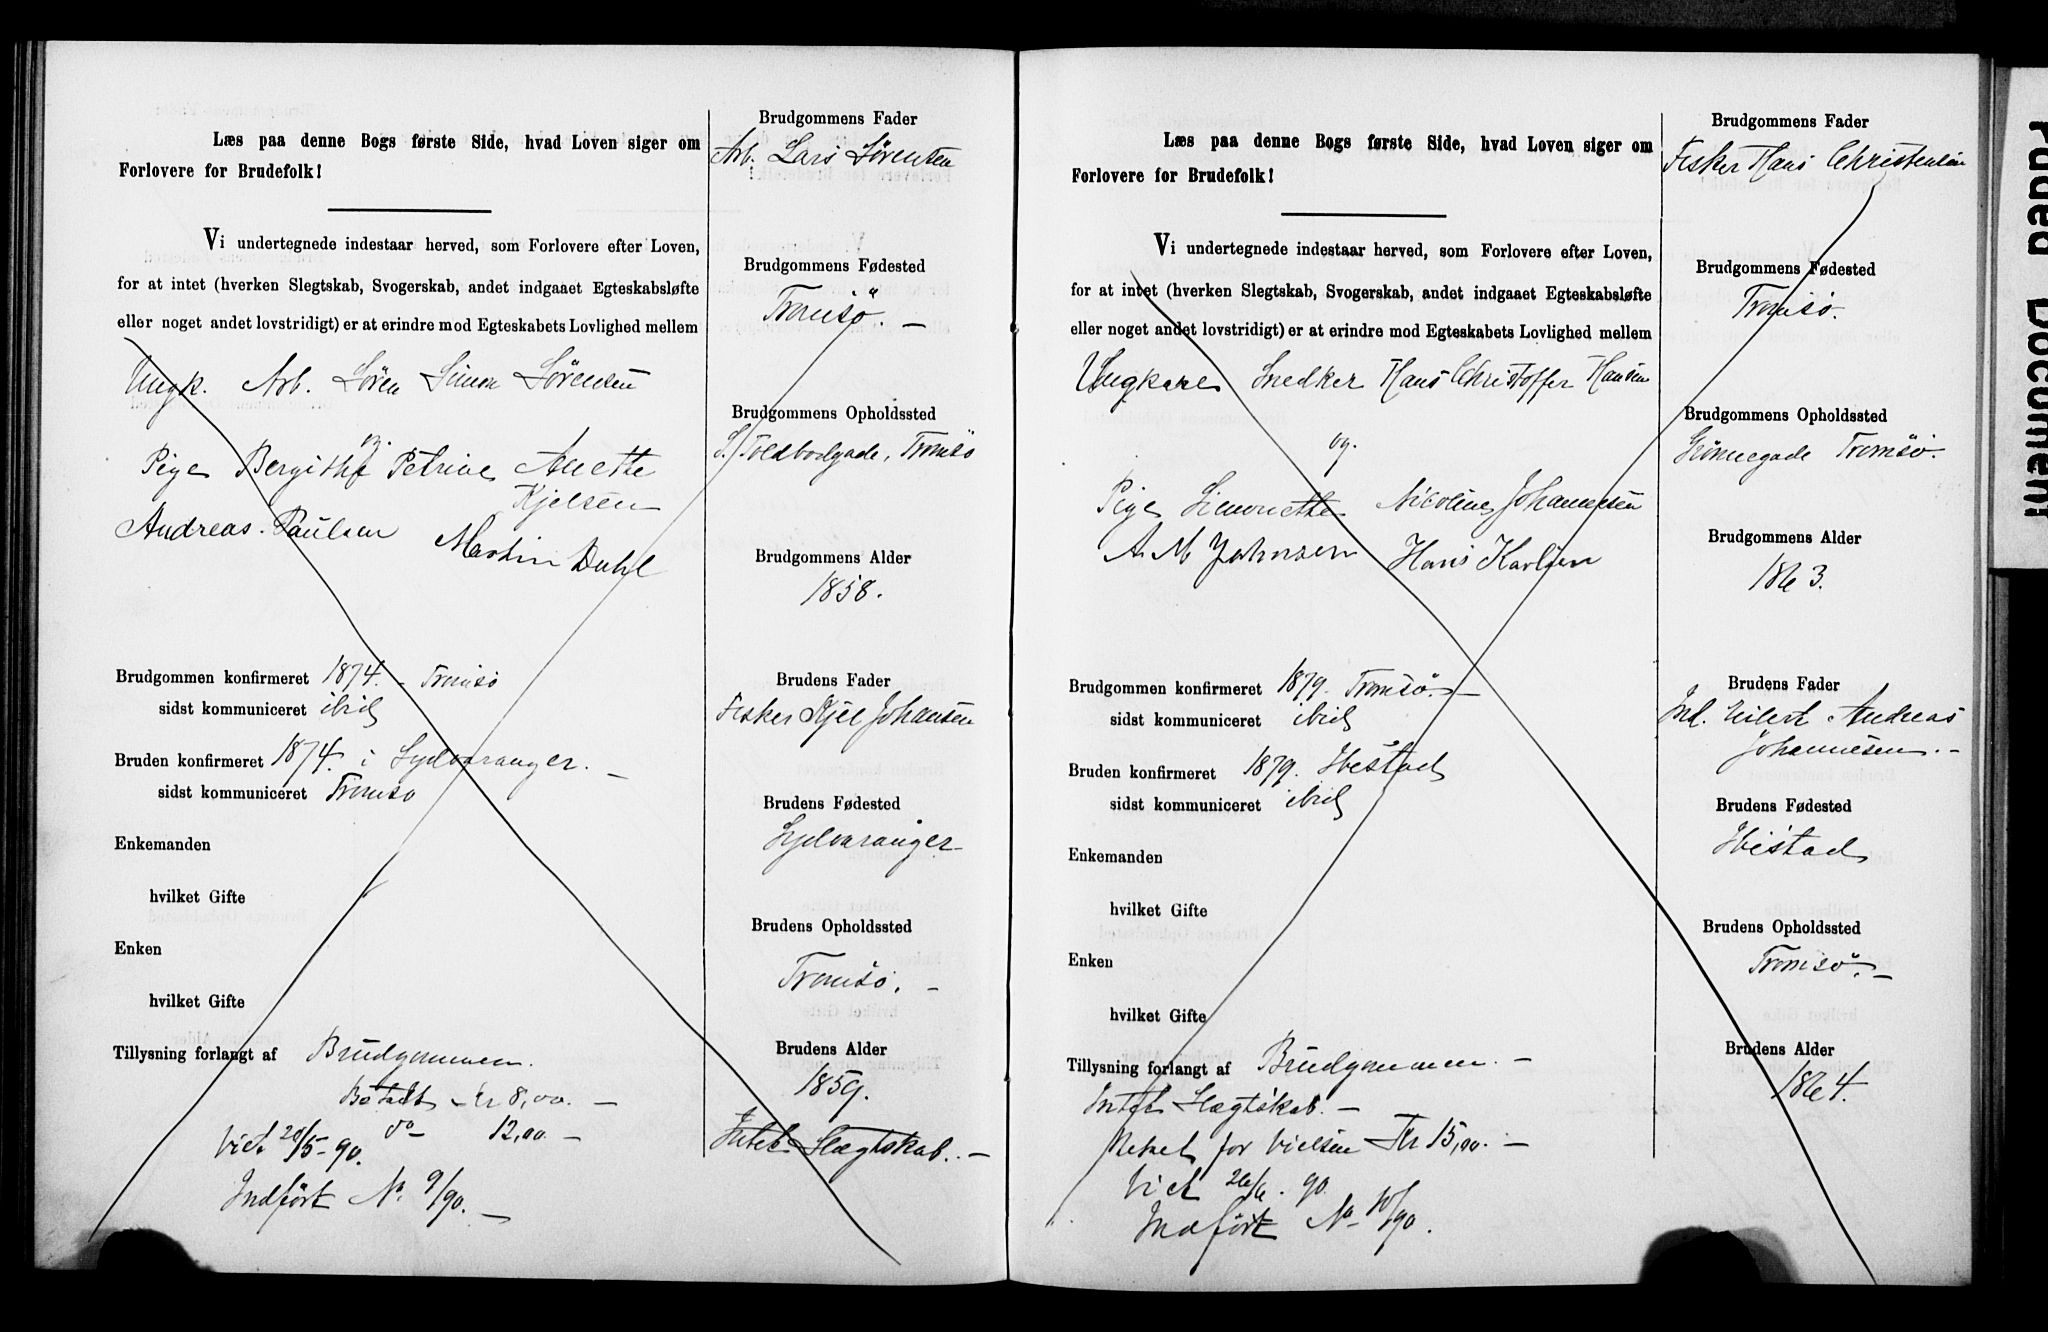 Læs paa denne Bogs første Side, hvad Loven siger om
Forlovere for Brudefolk!
Vi undertegnede indestaar herved, som Forlovere efter Loven,
for at intet (hverken Slegtskab, Svogerskab, andet indgaaet Egteskabsløfte
eller noget andet lovstridigt) er at erindre mod Egteskabets Lovlighed mellem
Ungk. Arb. Sören Simon Sörensen
og.
Pige Bergithe Petrine Anette
Kjelsen
Andreas. Paulsen Martin Dahl
Brudgommen konfirmeret 1874. - Tromsö
sidst kommuniceret ibid
Bruden konfirmeret 1874. i Sydvaranger. -
sidst kommuniceret Tromsö
Enkemanden
hvilket Gifte
Enken
hvilket Gifte
Tillysning forlangt af Brudgommen.
Betalt - Kr 8,00. -
do - 12,00. -
Viet 20/5 - 90.
Indført No. 9/90. -
Brudgommens Fader
Arb. Lars Sörensen
Brudgommens Fødested
Tromsö. -
Brudgommens Opholdssted
S. Toldbodgade, Tromsö
Brudgommens Alder
1858.
Brudens Fader
Fisker Kjel Johansen
Brudens Fødested
Sydvaranger
Brudens Opholdssted
Tromsö. -
Brudens Alder
1859.
Intet Slægtskab. -
Læs paa denne Bogs første Side, hvad Loven siger om
Forlovere for Brudefolk!
Vi undertegnede indestaar herved, som Forlovere efter Loven,
for at intet (hverken Slegtskab, Svogerskab, andet indgaaet Egteskabsløfte
eller noget andet lovstridigt) er at erindre mod Egteskabets Lovlighed mellem
Ungkarl Snedker Hans Christoffer Hansen
og.
Pige Simonette Nicoline Johannesen
A M Johnsen Hans Karlsen
Brudgommen konfirmeret 1879. Tromsö. -
sidst kommuniceret ibid
Bruden konfirmeret 1879. Ibestad
sidst kommuniceret ibid
Enkemanden
hvilket Gifte
Enken
hvilket Gifte
Tillysning forlangt af Brudgommen. -
Intet Slægtskab. -
for Vielsen Kr 15,00. -
Viet 26/6. 90.
Indført No 10/90.
Brudgommens Fader
Fisker Hans Christensen
Brudgommens Fødested
Tromsö.
Brudgommens Opholdssted
Grönnegade Tromsö.
Brudgommens Alder
1863.
Brudens Fader
Ind. Eilert Andreas
Johannesen. -
Brudens Fødested
Ibestad
Brudens Opholdssted
Tromsö. -
Brudens Alder
1864.
Faded Document